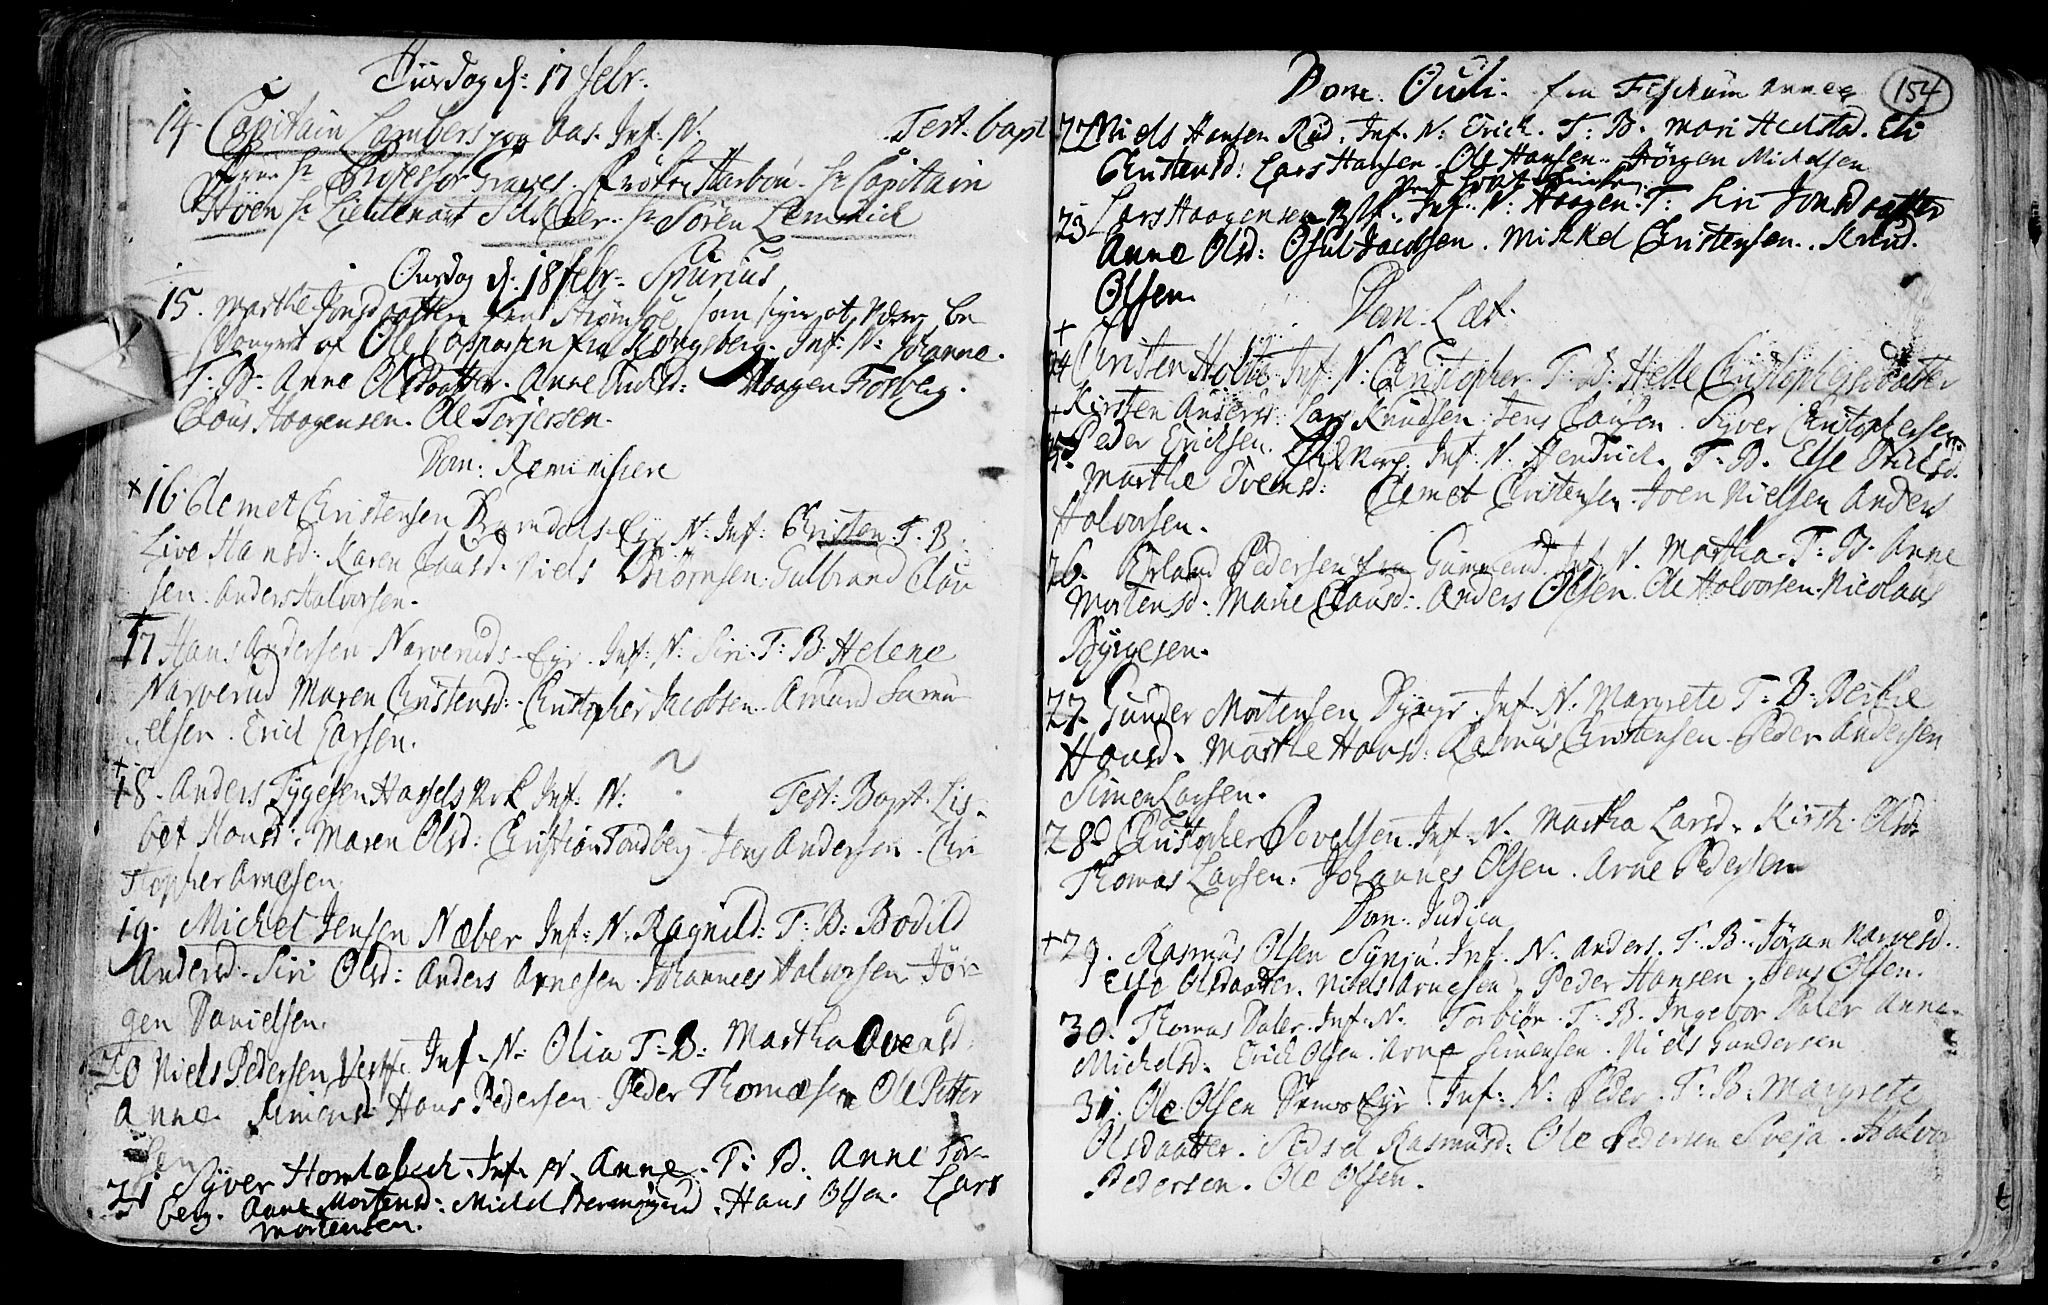 Tiirsdag d: 17 febr.
14. Capitain Lambers paa Aas. Inf. N. Test. bapt
Hr Professor Graves. Hr Capitain
Hven Hr Lieutenant Hr Sören Lemmich
Onsdag d: 18 febr. Spurius
15. Marthe Jonsdaatter fra Strömsöe, som siger at være be
svangret af Ole Caspersen fra Kongsberg. Inf: N: Johanne.
T: B: Anne Olsdaatter. Anne Haagen Forberg.
Claus Haagensen. Ole Terjersen.
Dom: Reminiscere
+ 16 Clemet Christensen Ramdals Eyr N: Inf: Christen T. B.
Live Hansd: Karen Niels Biörnsen. Gulbrand Clau
sen. Anders Halvorsen.
17 Hans Andersen Narveruds Eyr. Inf: N: Siri. T: B: Helene
Narverud Maren Christensd: Christopher Jacobsen. Amund Samu
elsen. Erich Larsen.
+ 18. Anders Tygesen Hassels Vrk Inf: N: Test: Bapt. Lis-
bet Hansd: Maren Olsd: Christian Tandberg Jens Andersen. Chri
stopher Arnesen.
19. Michel Jensen Næber Inf: N: Ragnild: T: B: Bodild
Andersd. Siri Olsd: Anders Arnesen. Johannes Halvorsen Jör-
gen Danielsen.
20 Niels Pedersen Inf. N. Olia T: B: Martha Ovensd.
Anne Simensd. Hans Pedersen. Peder Thomæsen Ole Petter
sen
21 Syver Homlebech. Inf. N. Anne. T: B. Anne For-
berg. Anne Mortensd: Michel Hans Olsen. Lars
Mortensen.
Dom. Oculi. fra Fischum Annex
154
22 Niels Hansen Rud. Inf. N: Erich. T: B. Mari Hedstad. Eli
Christensd: Lars Hansen. Ole Hansen. Jörgen Michelsen
23 Lars Haagensen Inf. N: Haagen. T: Siri Jonsdaatter
Anne Olsd: Osul Jacobsen. Mikkel Christensen. Knud
Olsen.
Dom. Læt.
+
24 Christen Holte Inf: N: Christopher. T: B: Helle Christophersdaatter
Kirsten Andersd: Lars Knudsen. Jens Clausen. Syver Christophersen
25. Peder Erichsen. Inf: N. Hendrich. T: B. Else
Marthe Svensd: Clemet Christensen. Joen Nielsen Anders
Halvorsen.
26. Erland Pedersen fra Inf. N. Martha. T: B. Anne
Mortensd. Marie Clausd: Anders Olsen. Ole Halvorsen. Nicolaus
Byrgesen.
27. Gunder Mortensen Inf. N. Margrete T: B: Berthe
Hansd. Marthe Hansd: Rasmus Christensen Peder Andersen
Simen Larsen.
28 Christopher Povelsen. Inf. N. Martha Larsd. Kirst. Olsd.
Thomas Larsen. Johannes Olsen. Arne Pedersen
Dom. Judica
+ 29. Rasmus Olsen Inf. N. Anders. T. B. Jöran Narvesd.
Else Olsdaatter. Niels Arnesen Peder Hansen. Jens Olsen.
30. Thomas Daler. Inf. N. Torbiör. T: B. Ingebor Daler Anne
Michelsd. Erich Olsen. Arne Simensen. Niels Gundersen
31. Ole Olsen Eyr. Inf: N: Peder. T: B: Margrete
Olsdaatter. Sidsel Rasmusd: Ole Pedersen Halvor
Pedersen. Ole Olsen.